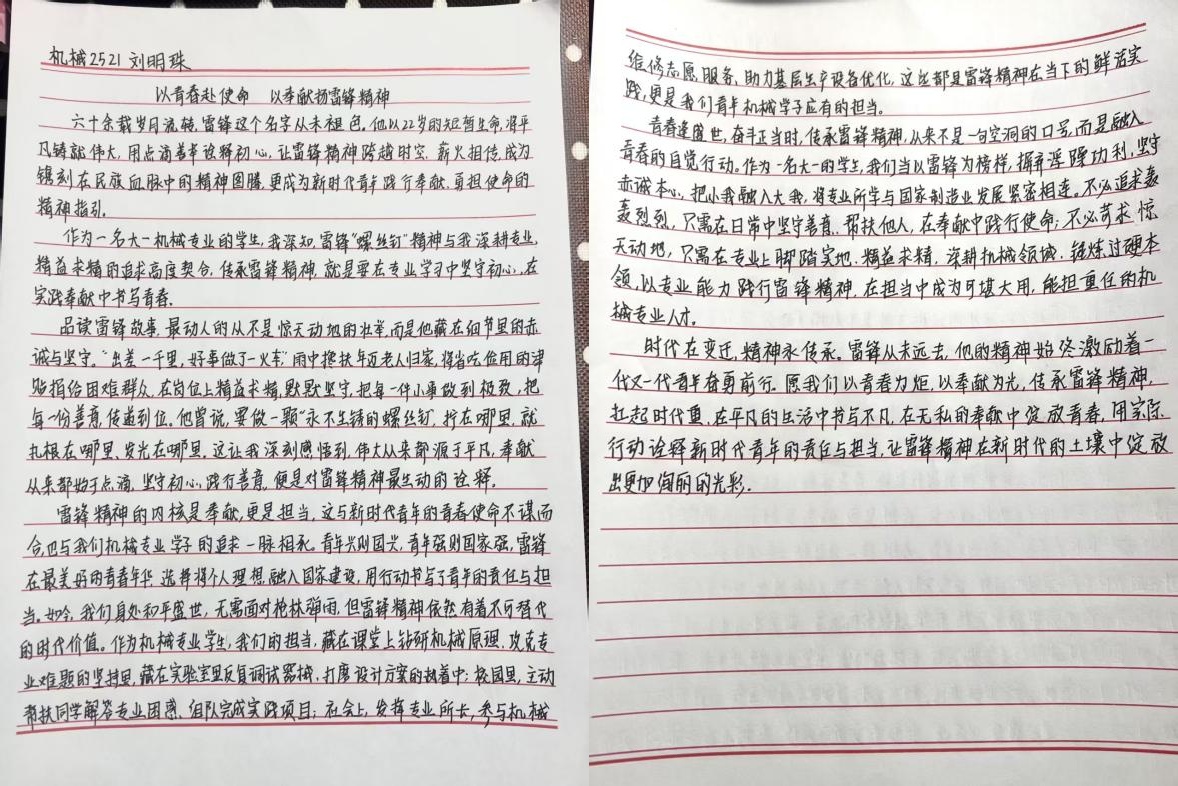 机械2521 刘明珠
以青春赴使命 以奉献扬雷锋精神
六十余载岁月流转,雷锋这个名字从未褪色。他以22岁的短暂生命,将平
凡铸就伟大,用点滴善举诠释初心,让雷锋精神跨越时空,薪火相传,成为
镌刻在民族血脉中的精神图腾,更成为新时代青年践行奉献,勇担使命的
精神指引。
作为一名大一机械专业的学生,我深知,雷锋"螺丝钉"精神与我深耕专业,
精益求精的追求高度契合,传承雷锋精神,就是要在专业学习中坚守初心,在
实践奉献中书写青春。
品读雷锋故事,最动人的从不是惊天动地的壮举,而是他藏在细节里的赤
诚与坚守。"出差一千里,好事做了一火车"雨中搀扶年迈老人归家,将省吃俭用的津
贴捐给困难群众,在岗位上精益求精,默默坚守,把每一件小事做到极致,把
每一份善意传递到位。他曾说,要做一颗"永不生锈的螺丝钉,拧在哪里,就
扎根在哪里、发光在哪里。这让我深刻感悟到,伟大从来都源于平凡,奉献
从来都始于点滴,坚守初心,践行善意,便是对雷锋精神最生动的诠释。
雷锋精神的内核是奉献,更是担当,这与新时代青年的青春使命不谋而
合,也与我们机械专业学子的追求一脉相承。青年兴则国兴,青年强则国家强,雷锋
在最美好的青春年华,选择将个人理想,融入国家建设,用行动书写了青年的责任与担
当。如今,我们身处和平盛世,无需面对枪林弹雨,但雷锋精神依然有着不可替代
的时代价值。作为机械专业学生,我们的担当,藏在课堂上钻研机械原理,攻克专
业难题的坚持里,藏在实验室里反复调试器械,打磨设计方案的执着中;校园里,主动
帮扶同学解答专业困惑,组队完成实践项目;社会上,发挥专业所长,参与机械
维修志愿服务、助力基层生产设备优化,这些都是雷锋精神在当下的鲜活实
践,更是我们青年机械学子应有的担当。
青春逢盛世,奋斗正当时,传承雷锋精神,从来不是一句空洞的口号,而是融入
青春的自觉行动。作为一名大一的学生,我们当以雷锋为榜样,摒弃浮躁功利,坚守
赤诚本心,把小我融入大我,将专业所学与国家制造业发展紧密相连。不必追求轰
轰烈烈,只需在日常中坚守善意,帮扶他人,在奉献中践行使命;不必苛求惊
天动地,只需在专业上脚踏实地,精益求精,深耕机械领域,锤炼过硬本
领,以专业能力践行雷锋精神,在担当中成为可堪大用,能担重任的机
械专业人才。
时代在变迁,精神永传承。雷锋从未远去,他的精神始终激励着一
代又一代青年奋勇前行。愿我们以青春为炬,以奉献为光,传承雷锋精神,
扛起时代重,在平凡的生活中书写不凡,在无私的奉献中绽放青春,用实际
行动诠释新时代青年的责任与担当,让雷锋精神在新时代的土壤中绽放
出更加绚丽的光彩.